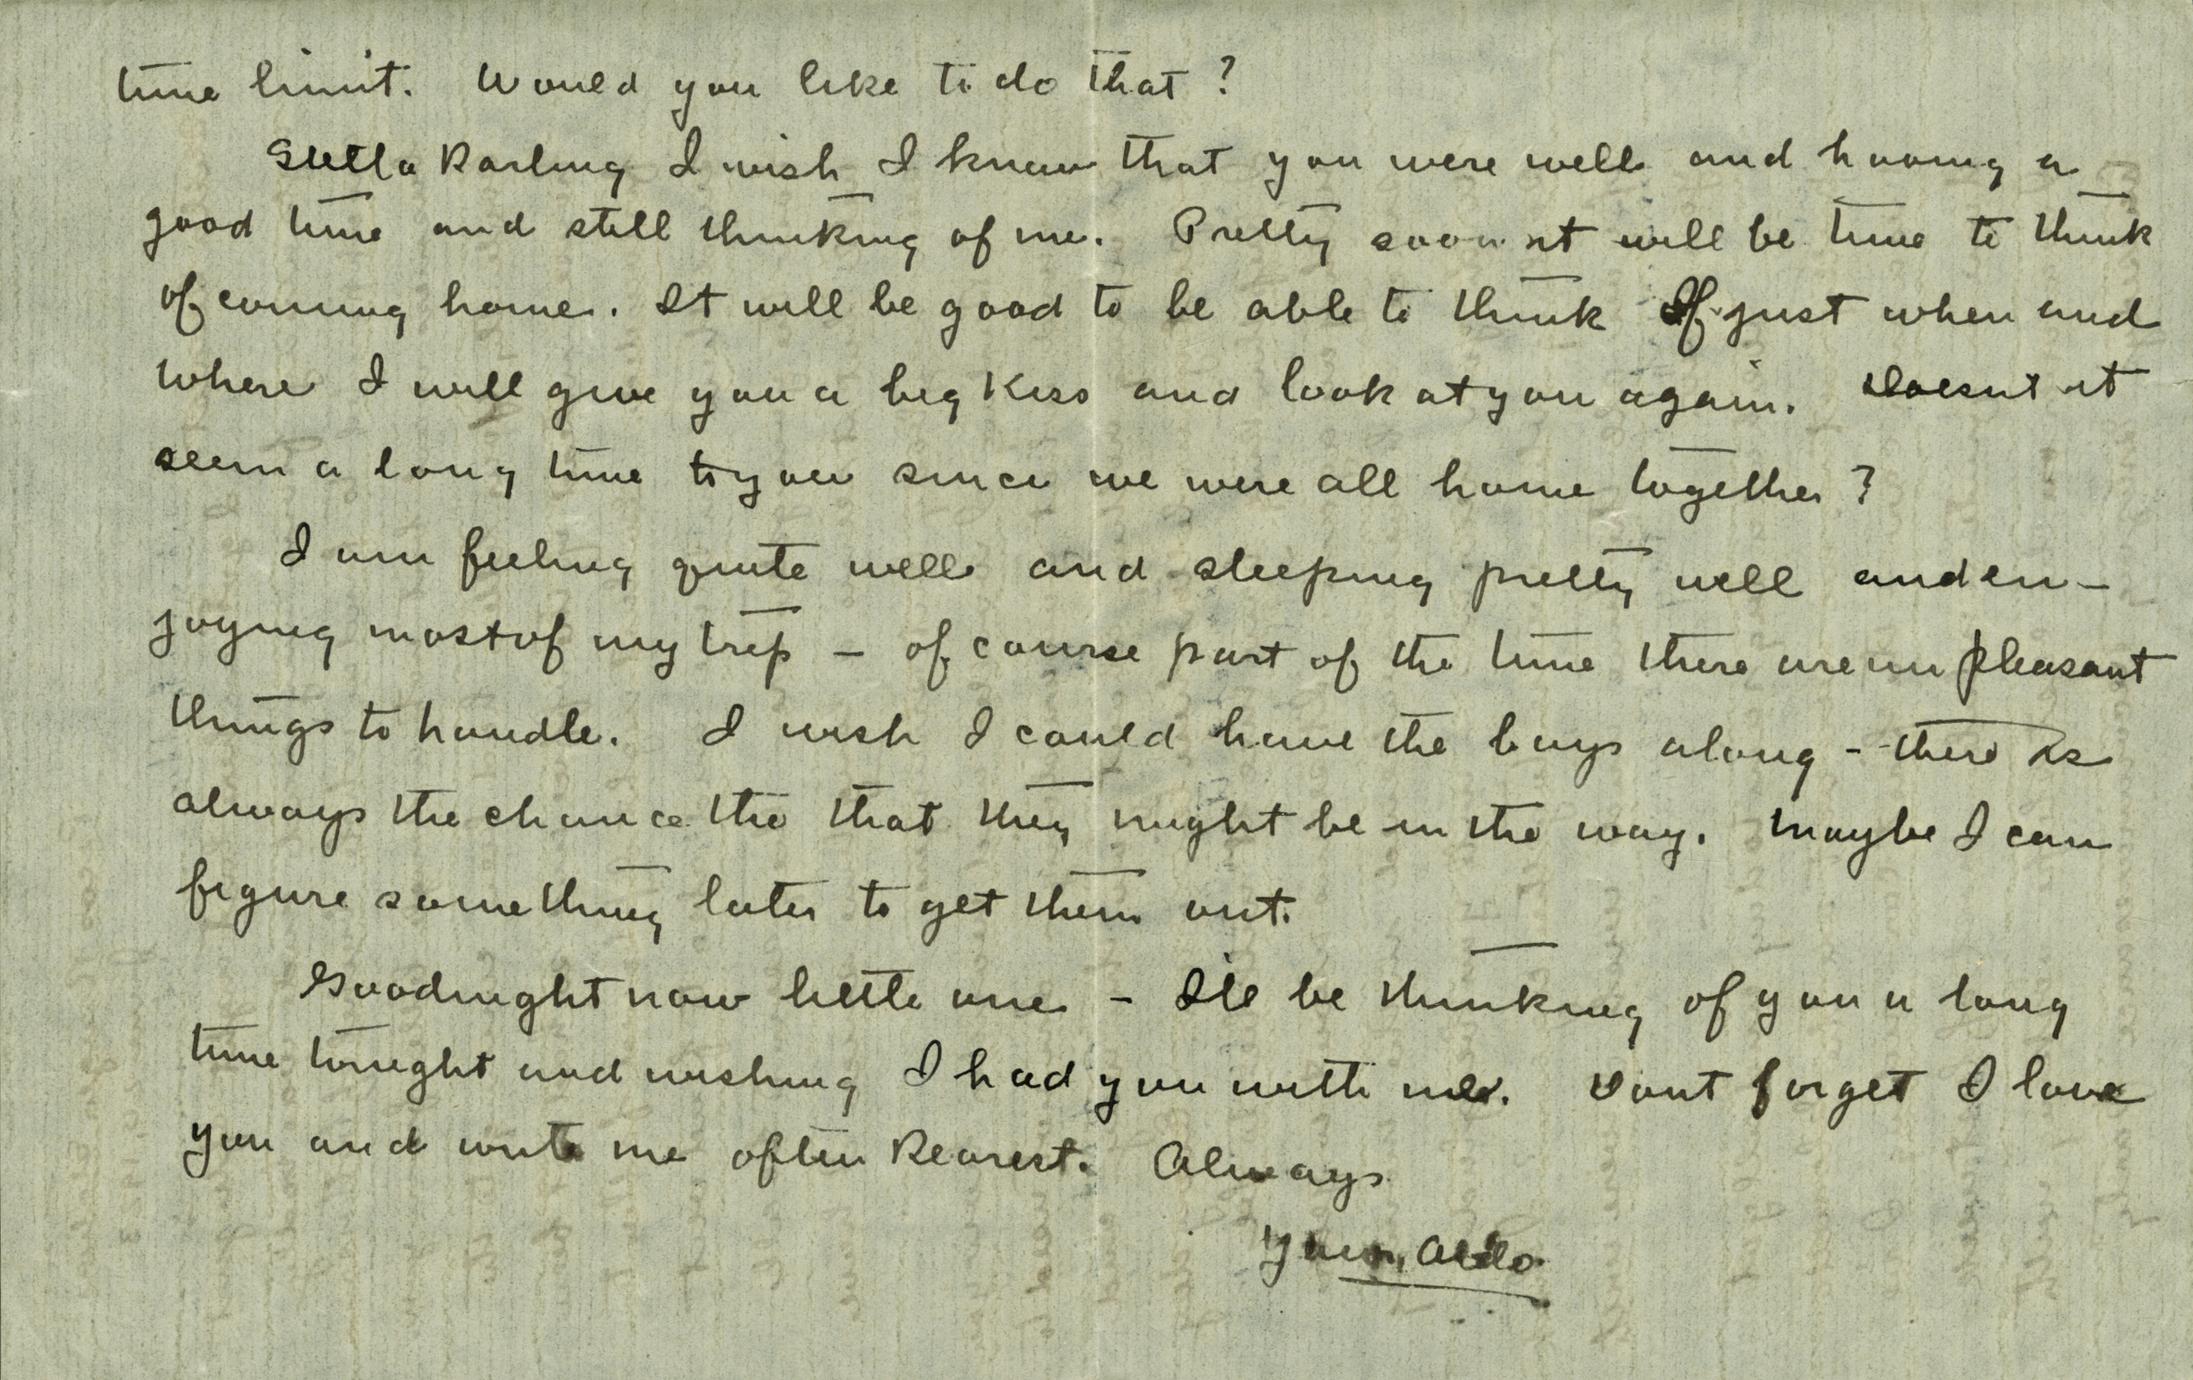 time limit. Would you like to do that?
Stella Darling I wish I knew that you were well and having a
good time and still thinking of me. Pretty soon it will be time to think
of coming home. It will be good to be able to think of just when and
where I will give you a big kiss and look at you again. Doesnt it
seem a long time to you since we were all home together?
I am feeling quite well and sleeping pretty well and en-
joying most of my trip - of course part of the time there are unpleasant
things to handle. I wish I could have the boys along - there is
always the chance tho that they might be in the way. Maybe I can
figure something later to get them out.
Goodnight now little one - Ill be thinking of you a long
time tonight and wishing I had you with me. Dont forget I love
you and write me often Dearest. Always
Your, Aldo